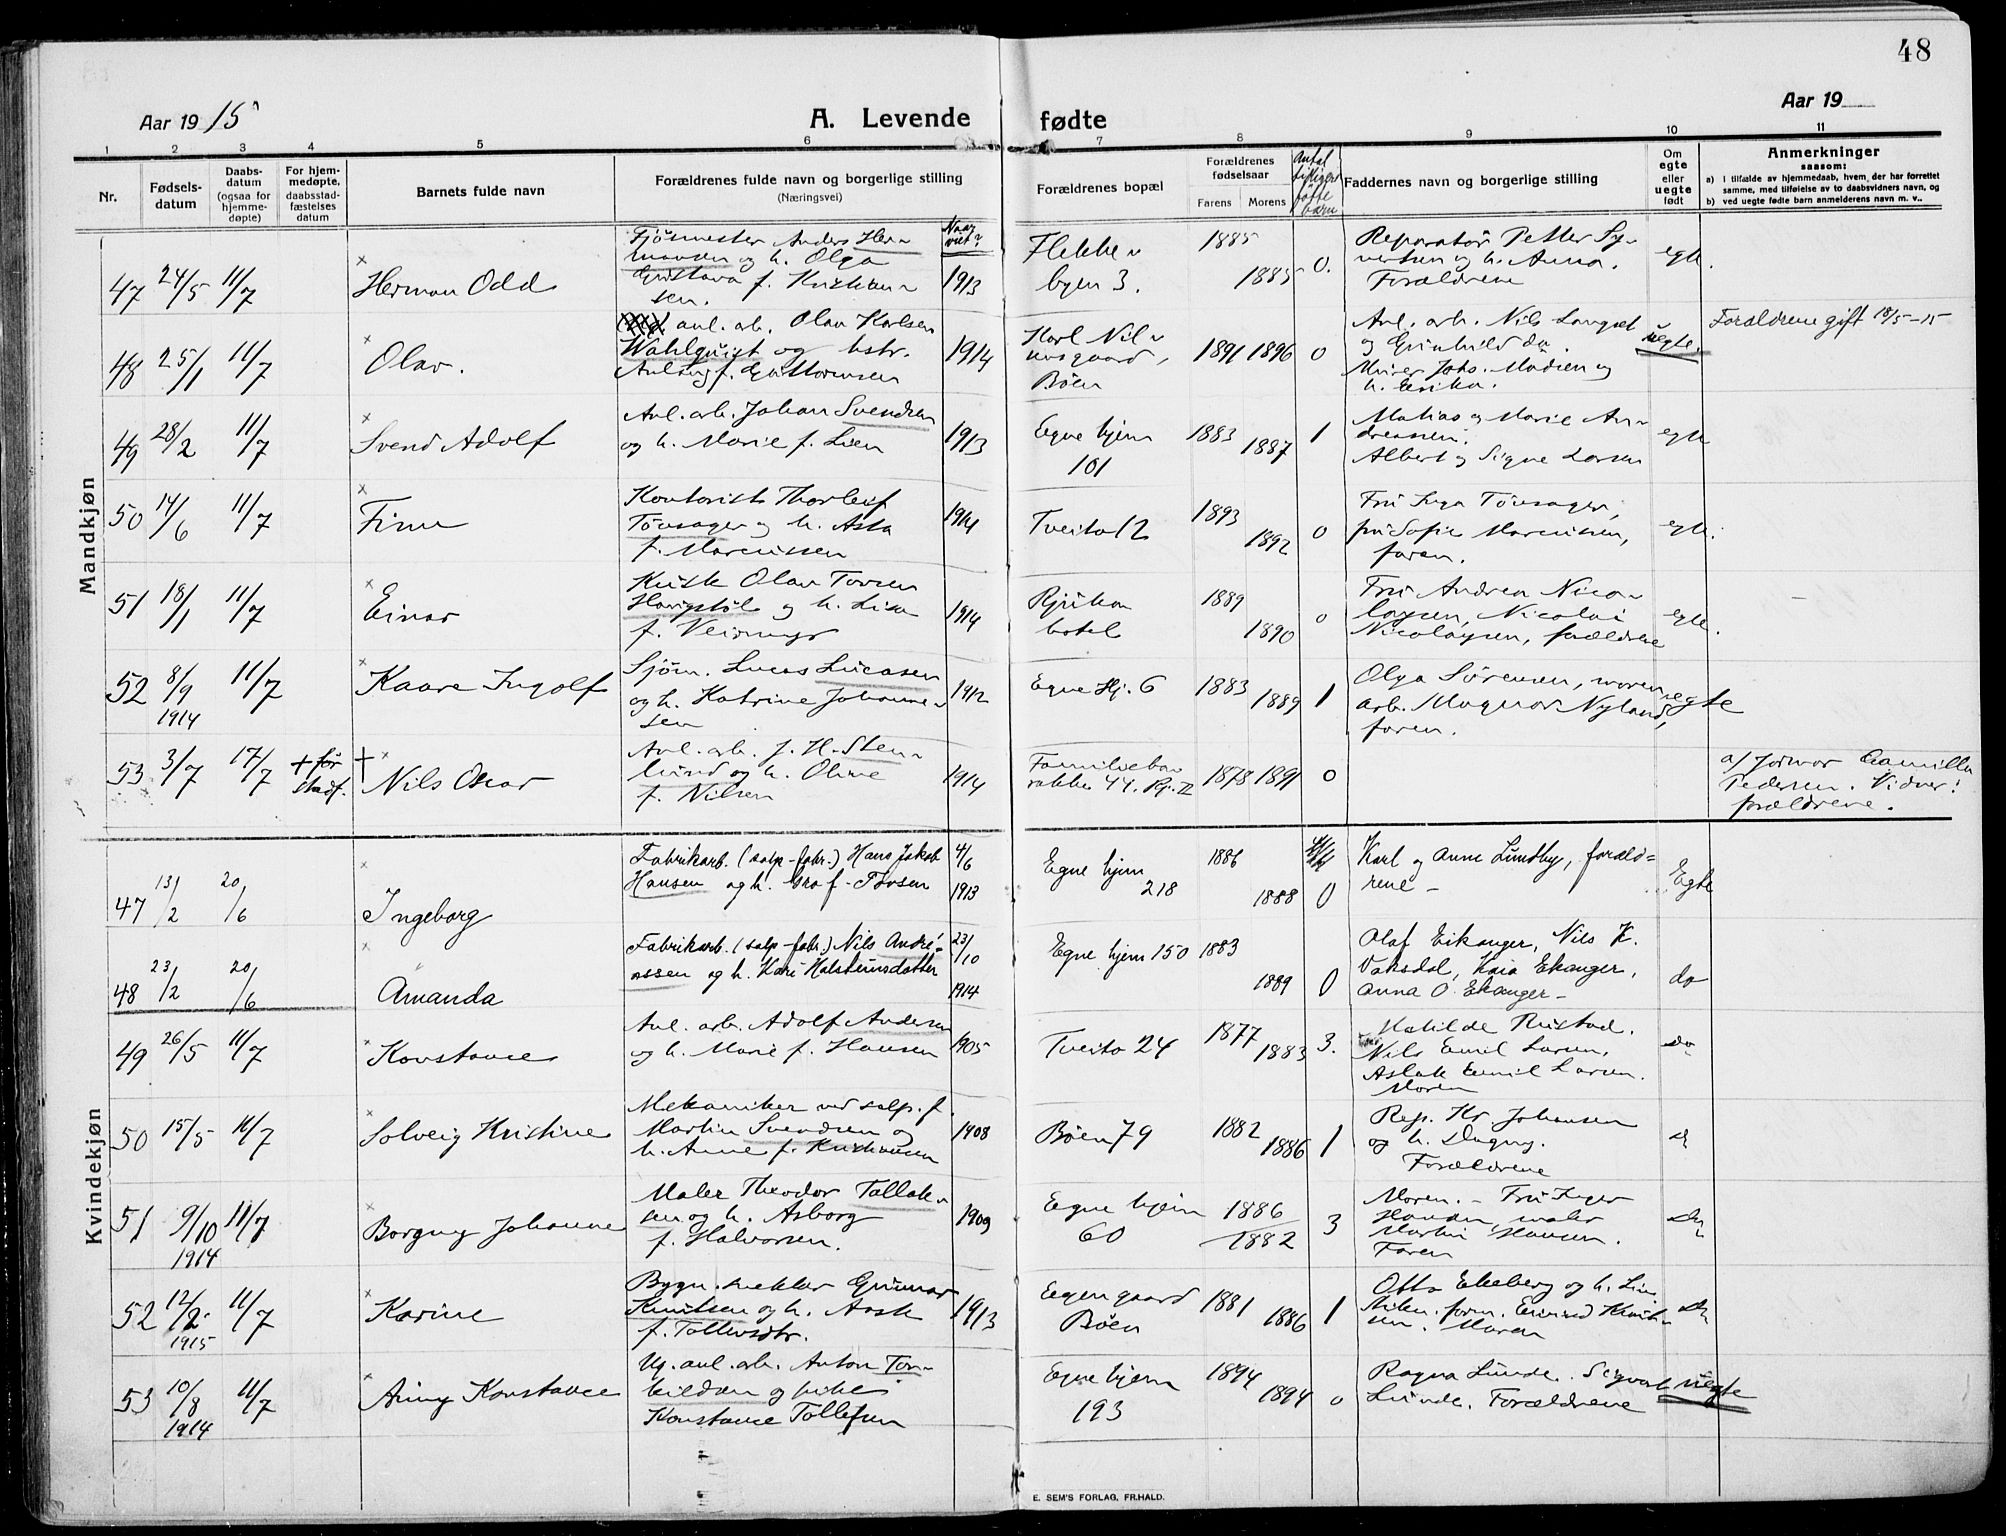 48
Aar 1915
A. Levende fødte
Aar 19
1 2 3 4 5 6 7 8 9 10 11
Nr.
Fødsels-
datum
Daabs-
datum
(ogsaa for
hjemme-
døpte)
For hjem-
medøpte,
daabsstad-
fæstelses
datum
Barnets fulde navn
Forældrenes fulde navn og borgerlige stilling
(Næringsvei)
Naar
viet?
Forældrenes bopæl
Forældrenes
fødselsaar
Farens Morens
Antal
tidligere
fødte
barn
Faddernes navn og borgerlige stilling
Om
egte
eller
uegte
født
Anmerkninger
saasom:
a) i tilfælde av hjemmedaab, hvem der har forrettet
samme, med tilføielse av to daabsvidners navn, og
b) ved uegte fødte barn anmelderens navn m. v..
Mandkjøn
47 24/5 11/7 Herman Odd
Fjøsmester Anders Her-
mansen og h. Olga
Gustava f. Kristian-
sen.
1913
Flekke-
byen 3.
1885 1885 0.
Reparatør Petter Sy-
vertsen og h. Anna.
Forældrene
egte.
48 25/1 11/7 Olav.
anl. arb. Olav Karlsen
Wahlquist og hstr.
1914
Karl Nil-
usgaard,
Bøen
1891 1896 0
Anl. arb. Nils Langset
og Gunhild do.
Murer Johs. Madsen og
h. Erika.
uegte.
Forældrene gift 18/5-15
49 28/2 11/7 Svend Adolf
Anl. arb. Johan Svendsen
og h. Marie f. Lien
1913
Egne hjem
101
1883 1887 1
Matias og Marie An-
dreassen.
Albert og Signe Larsen
egte
50 14/6 11/7 Finn
Kontorist Thorleif
Tovsager og h. Asta
f. Marcussen
1914
Tveito 12
1893 1892 0
Fru Inga Tovsager,
fru Sofie Marcussen,
faren.
egte.
51 18/1 11/7 Einar
Kusk Olav Tovsen
Haugstøl og h. Lisa
f.
1914
Rjukan
hotel
1889 1890 0
Fru Andrea Nico-
laysen, Nicolai
Nicolaysen, forældrene
egte.
52 8/9 11/7 Kaare Ingolf
1914
Sjøm. Lucas Lucasen
og h. Katrine Johanne-
sen
1912
Egne Hj. 6
1883 1889 1
Olga Sørensen, moren
arb. Magnus Nyland,
faren.
egte
53 3/7 17/7 + før
stadf. Nils Oscar
Anl. arb. J. H. Sten-
lund og h. Oline
f. Nilsen
1914
Familieba-
rakke 44. Rj. II
1878 1891 0
a/ Jormor Camilla
Pedersen. Vidner:
forældrene.
Kvindekjøn
47 13/2 20/6 Ingeborg
Fabrikarb. (salp-fabr.) Hans Jakob
Hansen og h. Gro f. Tovsen
4/6
1913
Egne hjem
218
1886 1888 0
Karl og Anne Lundby, foræld=
rene -
Egte
48 23/2 20/6 Amanda
Fabrikarb. (salp-fabr.) Nils André-
assen og h. Kari Halsteinsdatter
23/10
1914
Egne hjem 150 1883
1889 0
Olaf Eikanger, Nils K.
Vaksdal, Kaia Ekanger.
Anna O. Ekanger -
do
49 26/5 11/7 Konstance
Anl. arb. Adolf Andersen
og h. Marie f. Hansen
1905
Tveito 24
1877 1883 3.
Matilde Rustad.
Nils Emil Larsen.
Aslak Emil Larsen.
Moren
do
50 15/5 11/7 Solveig Kristine
Mekaniker ved salp. f.
Martin Svendsen og
h. Anne f. Kristiansen
1908
Bøen 79
1882 1886 1
Rep. Kr. Johansen
og h. Dagny.
Forældrene
do
51 9/10 11/7 Borgny Johanne
1914
Maler Theodor Tollak-
sen og h. Asborg
f. Halvorsen.
1909
Egne hjem
60
1886
1882 3
Moren. - Fru Inger
Hansen, maler
Martin Hansen.
Faren
do
52 12/2 11/7 Karine
1915
Bygn. snekker Gunnar
Knutsen og h. Aase
f. Tollevsdtr.
1913
Egen gaard
Bøen
1881 1886 1
Otto Ekeberg og h.
Moren
do
53 10/8 11/7 Anny Konstance
1914
Ug. anl. arb. Anton Tor-
kildsen og pike
Konstance Tollefsen
Egne hjem
193
1894 1894 0
Ragna Lunde. Sigvart
Lunde. Forældrene
uegte
E. SEM'S FORLAG, FR.HALD.